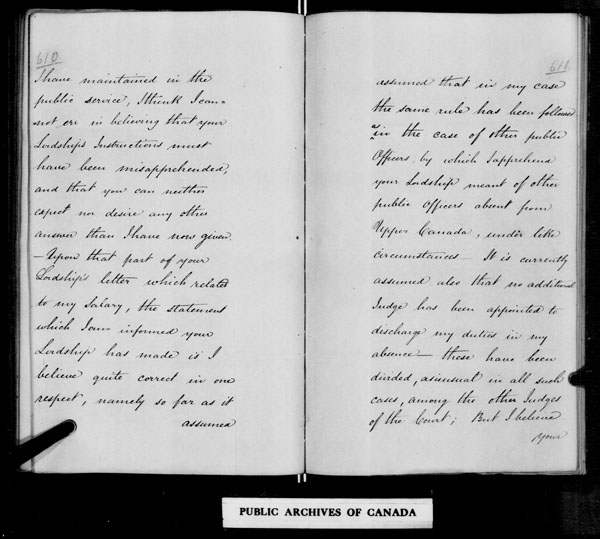 610
I have maintained in the
public service, I think I can=
not err in believing that your
Lordship's Instructions must
have been misapprehended,
and that you can neither
expect nor desire any other
answer than I have now given.
—Upon that part of your
Lordship's letter which related
to my Salary, the statement
which I am informed your
Lordship has made is I
believe quite correct in one
respect, namely so far as it
assumed
611
assumed that in my case
the same rule has been followed
as in the case of other public
Officers, by which I apprehend
your Lordship meant of other
public Officers absent from
Upper Canada, under like
circumstances— It is currently
assumed also that no additional
Judge has been appointed to
discharge my duties in my
absence— these have been
divided, as is usual in all such
cases, among the other Judges
of the Court; But I believe
your
PUBLIC ARCHIVES OF CANADA